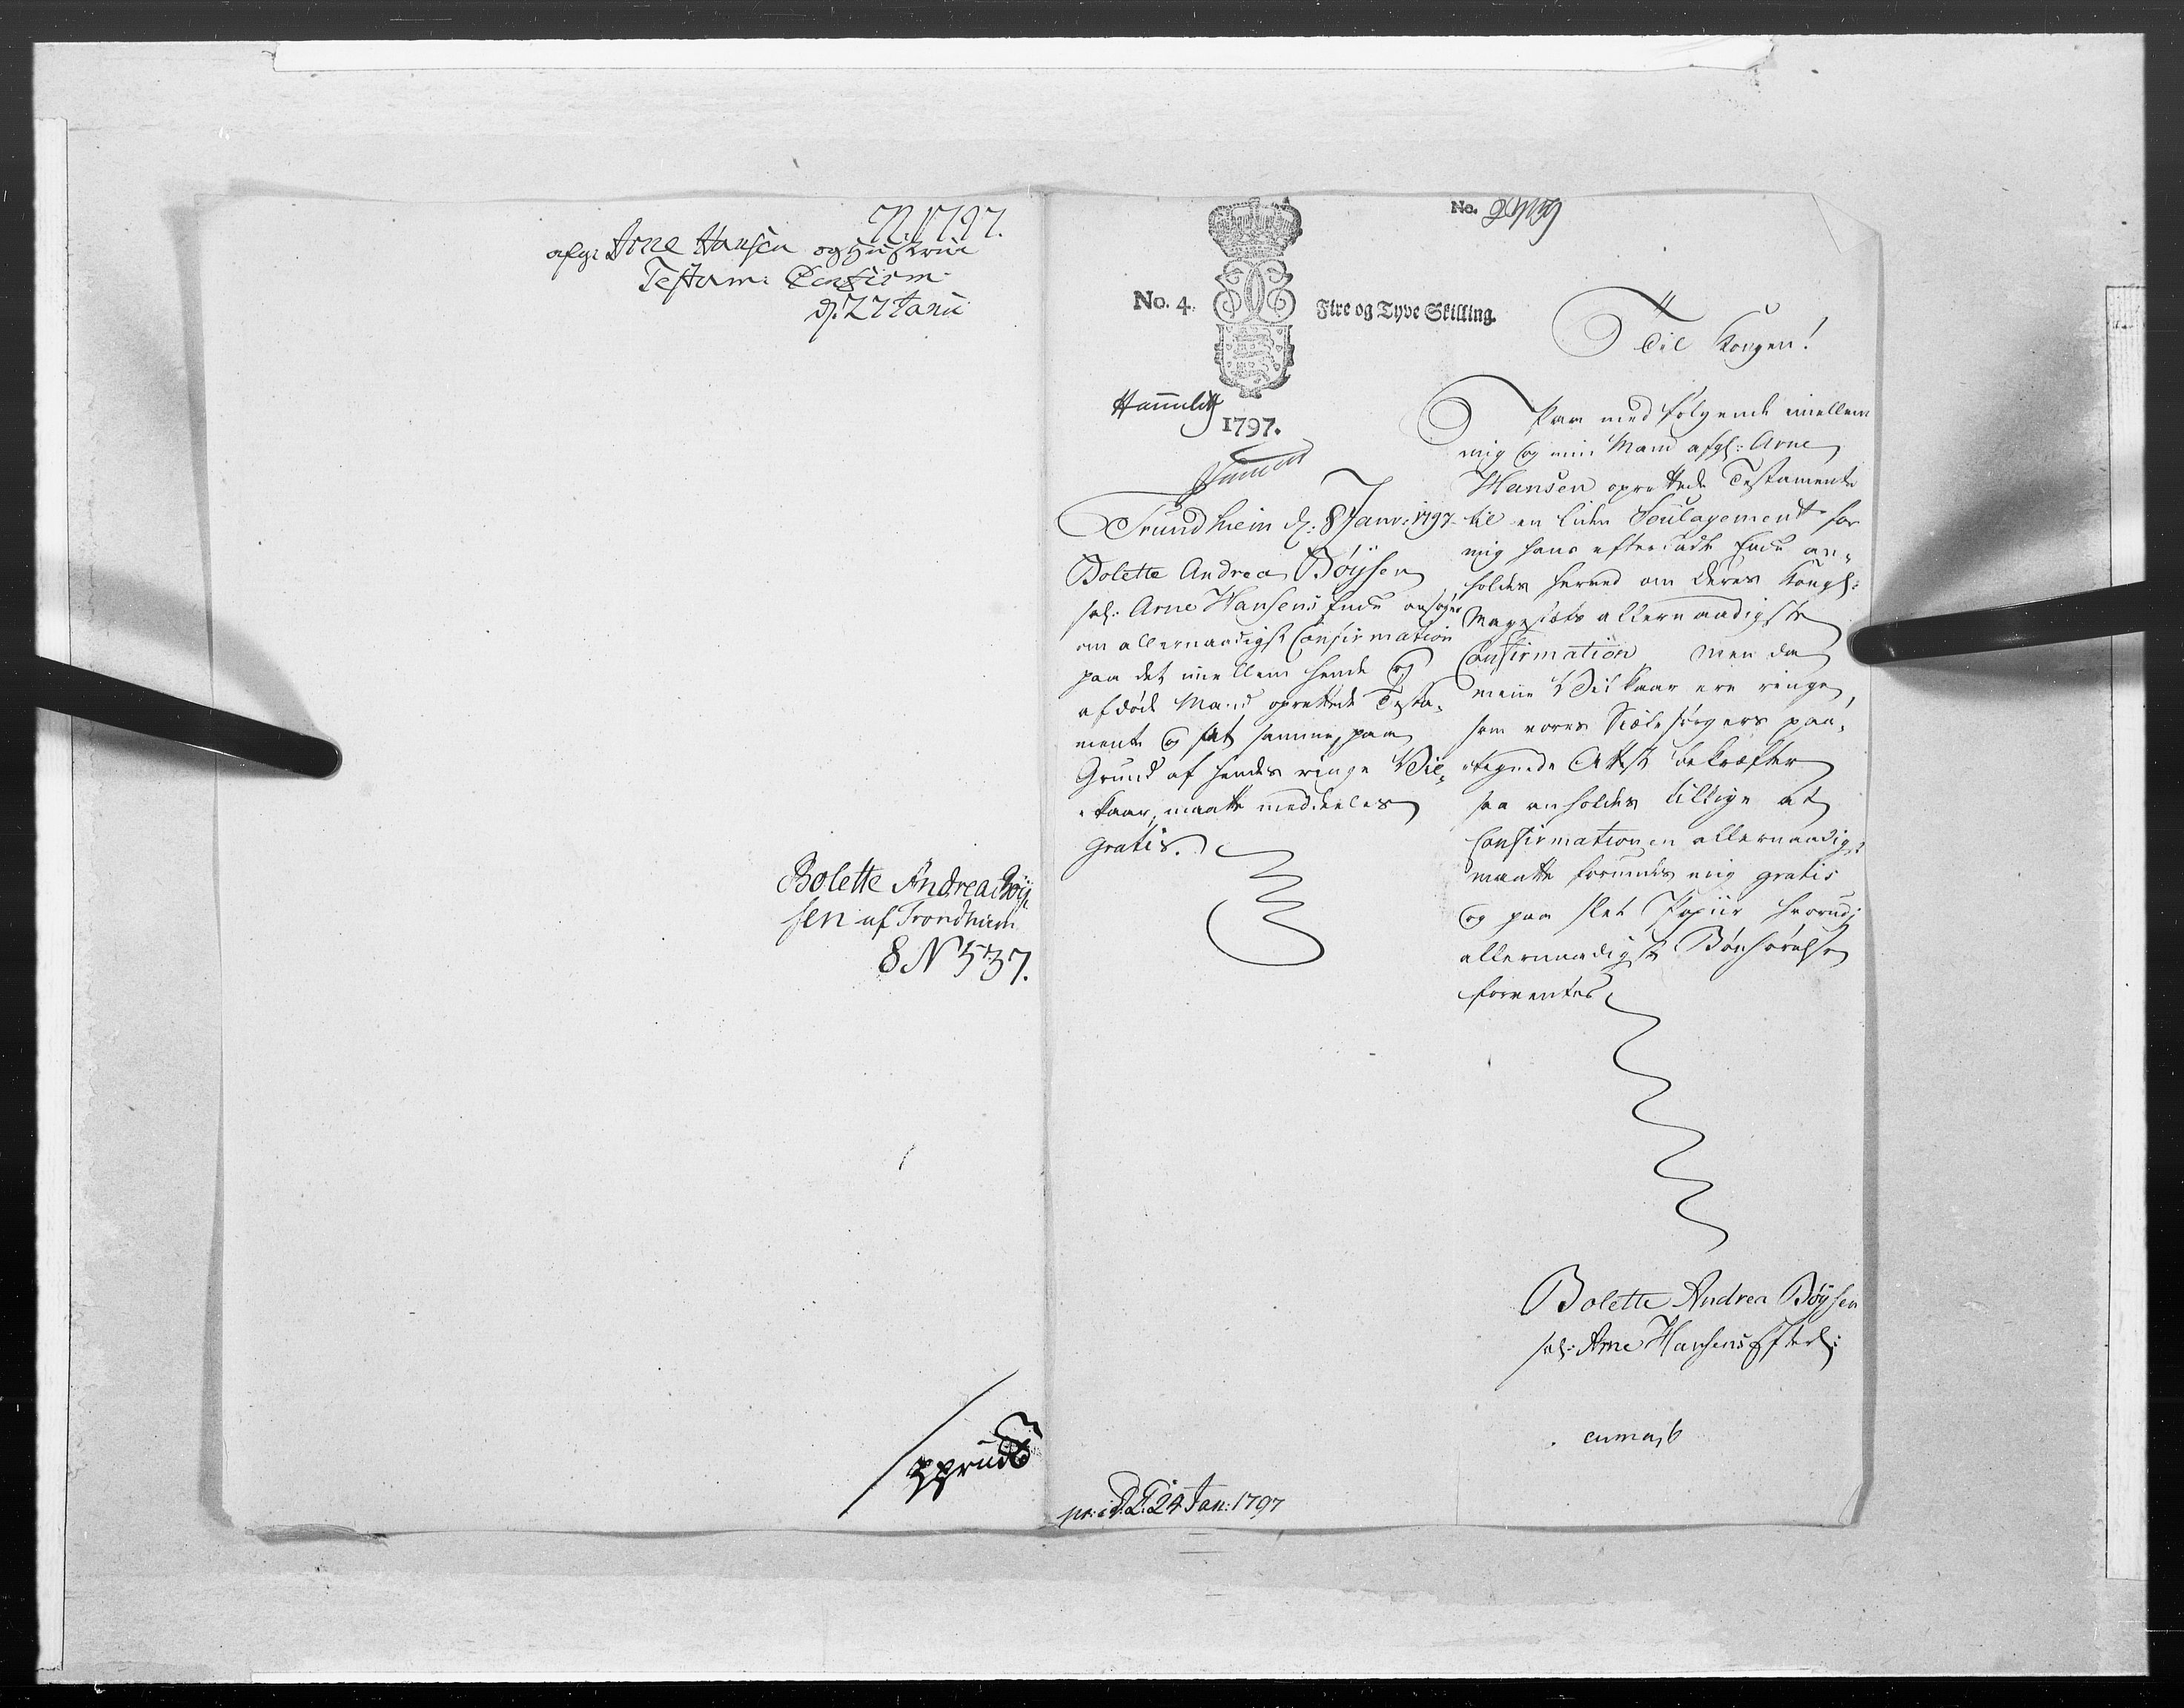 N. 1797.
afg: Arne Hansen og Hustrue
Testam: Confirm:
d. 27 Janu:
Bolette Andrea Böÿ-
sen af Trondhiem
8 N 537.
No.
No. 4.
Fire og Tyve Skilling.
1797.
Trundhiem d: 8 Janv: 1797
Bolette Andrea Böÿsen
sal: Arne Hansens Enke ansøger
om allernaadigst Confirmation
paa det imellem hende og
afdøde Mand oprettede Testa-
mente og at samme, paa
Grund af hendes ringe Vil-
kaar, maatte meddeeles
gratis.
Til Kongen!
Paa medfølgende imellem
mig og min Mand afgl: Arne
Hansen oprettede Testamente
til en liden Soulagement for
mig hans efterladte Enke an-
holdes herved om Deres Kongl:
Mayestæts allernaadigste
Confirmation men da
mine Vilkaar ere ringe,
som vores Siælesørgers paa-
tegnede Attest bekræfter
saa anholdes tillige at
Confirmationen allernaadigst
maatte forundes mig gratis
og paa slet Papiir hvorudi
allernaadigste Bønhørelse
forventes
Bolette Andrea Böysen
sal: Arne Hansens Efterl:
pr: i D: C: 24 Jan: 1797